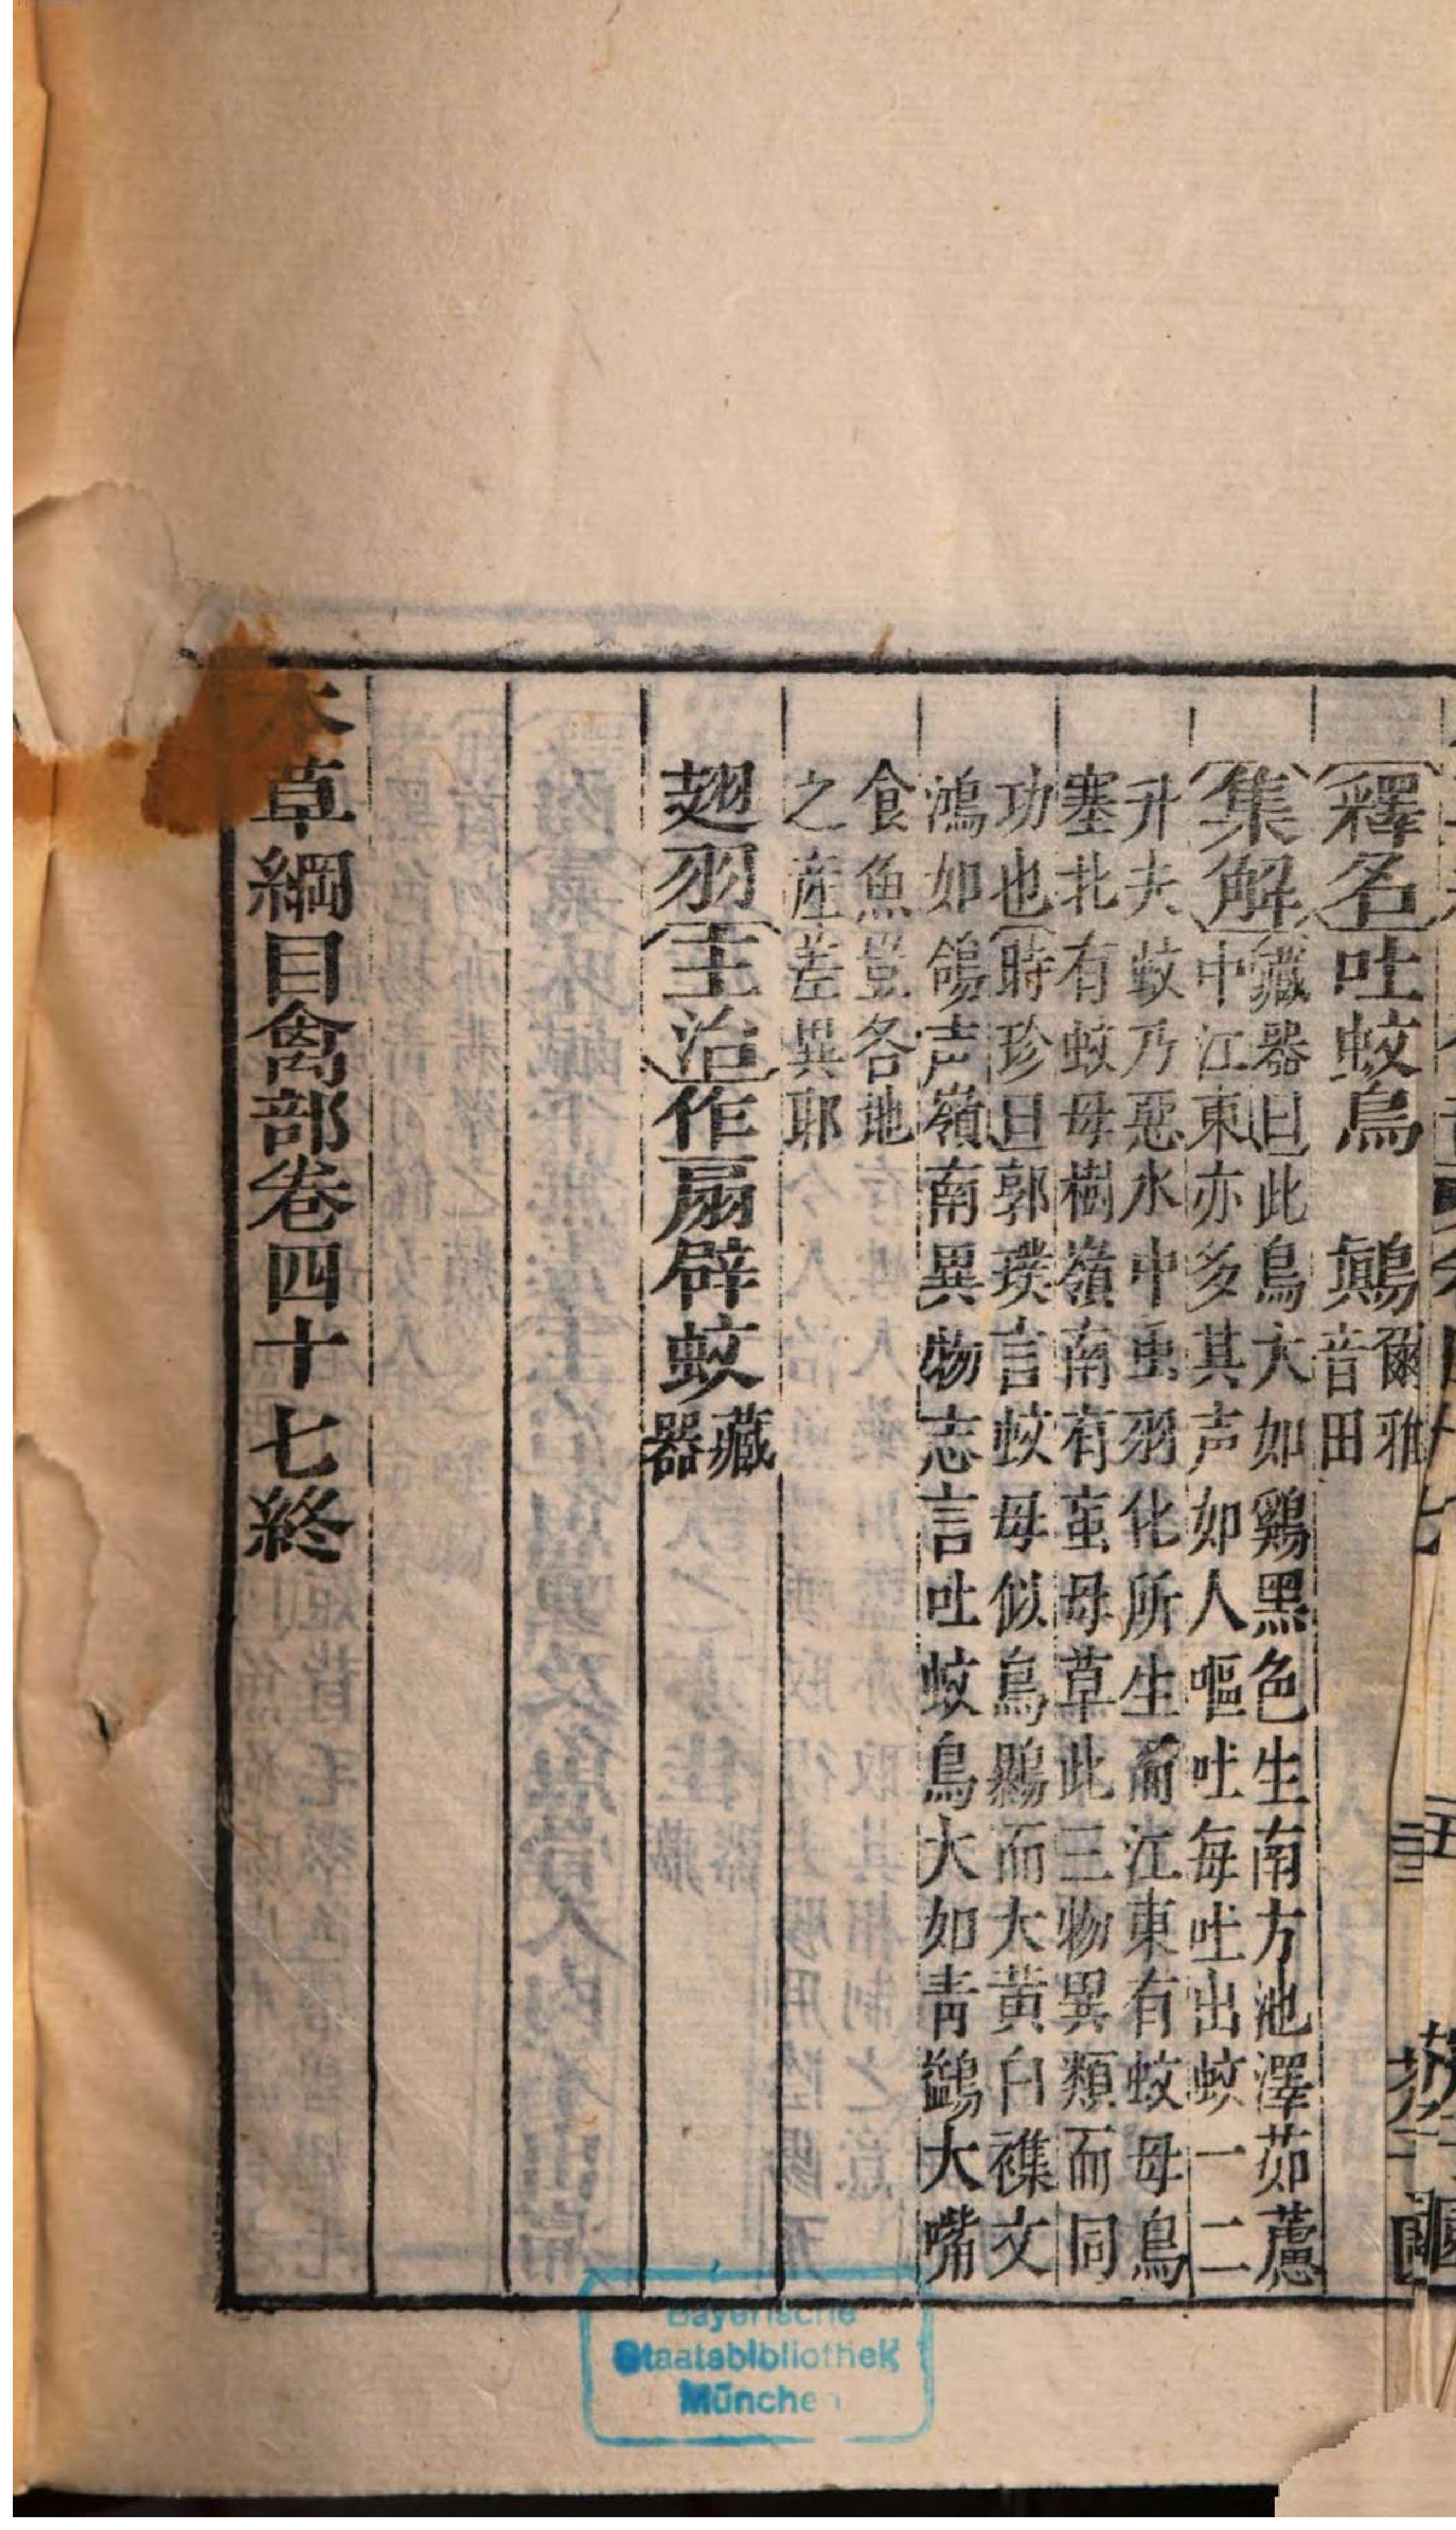 釋名吐蚊鳥 鷏爾雅音田
集解藏器曰此鳥大如鷄黑色生南方池澤茹蘆
中江東亦多其声如人嘔吐每吐出蚊一二
升夫蚊乃惡水中虫羽化所生而江東有蚊母鳥
塞北有蚊母樹嶺南有䖟母草此三物異類而同
功也時珍曰郭璞言蚊母似烏鷃而大黃白襍文
鴻如鴿声嶺南異物志言吐蚊鳥大如青鷁大嘴
食魚豈各地
之產差異耶
翅羽主治作扇辟蚊藏器
本草綱目禽部卷四十七終
Bayerische
Staatsbibliothek
München